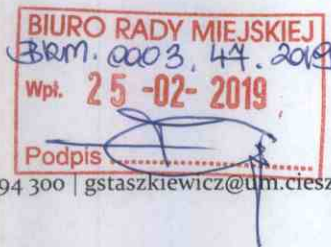 BIURO RADY MIEJSKIEJ
BRM. 0003. 47. 2019
Wpł. 25 -02- 2019
Podpis
94 300 | gstaszkiewicz@um.ciesz